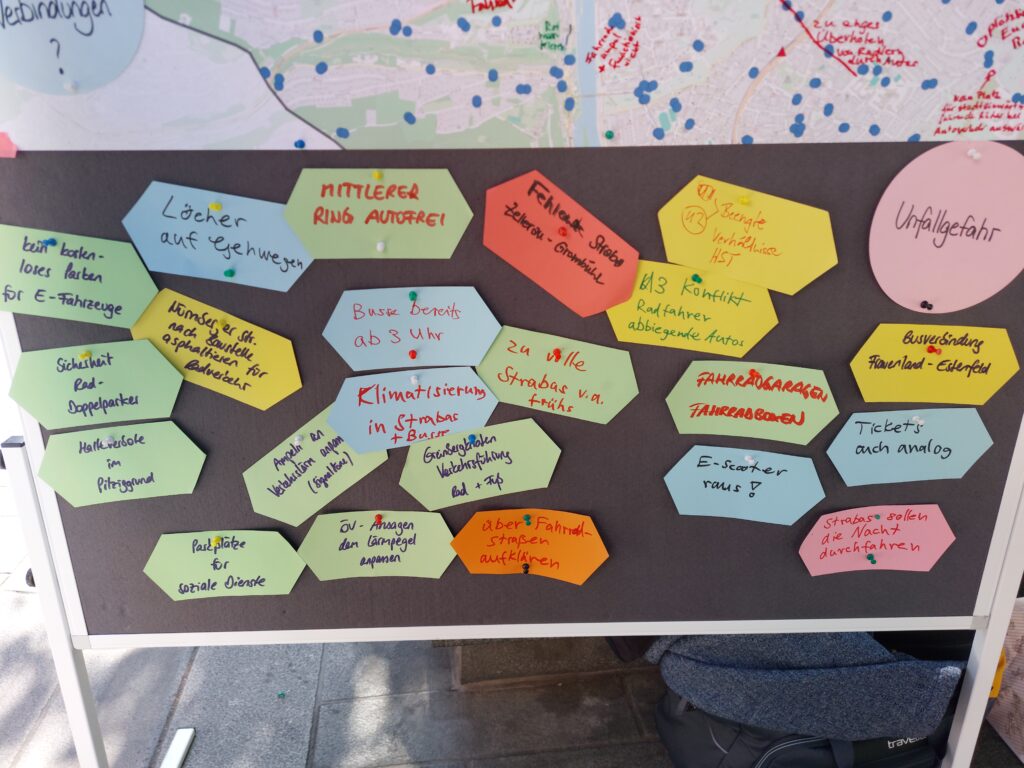 Verbindungen
?
Fahrrad
zu enges
Überholen
von Radlern
durch Autos
kein Platz
MITTLERER
RING AUTOFREI
Löcher
auf Gehwegen
Fehlende Straba
Zellerau - Grombühl
Beengte
Verhältnisse
HST
Unfallgefahr
kein kosten-
loses Parken
für E-Fahrzeuge
Nürnberger Str.
nach Baustelle
asphaltieren für
Radverkehr
Busse bereits
ab 3 Uhr
Konflikt
Radfahrer
abbiegende Autos
Busverbindung
Frauenland - Estenfeld
Sicherheit
Rad-
Doppelparker
zu volle
Strabas v.a.
frühs
Klimatisierung
in Strabas
+ Busse
FAHRRADGARAGEN
FAHRRADBOXEN
Tickets
auch analog
Halteverbote
im
Pilziggrund
Ampeln an
Verkehrslärm anpassen
(Signalton)
Verkehrsführung
Rad + Fuß
E-scooter
raus!
Parkplätze
für
soziale Dienste
ÖV-Ansagen
dem Lärmpegel
anpassen
über Fahrrad-
straßen
aufklären
Strabas sollen
die Nacht
durchfahren
travel